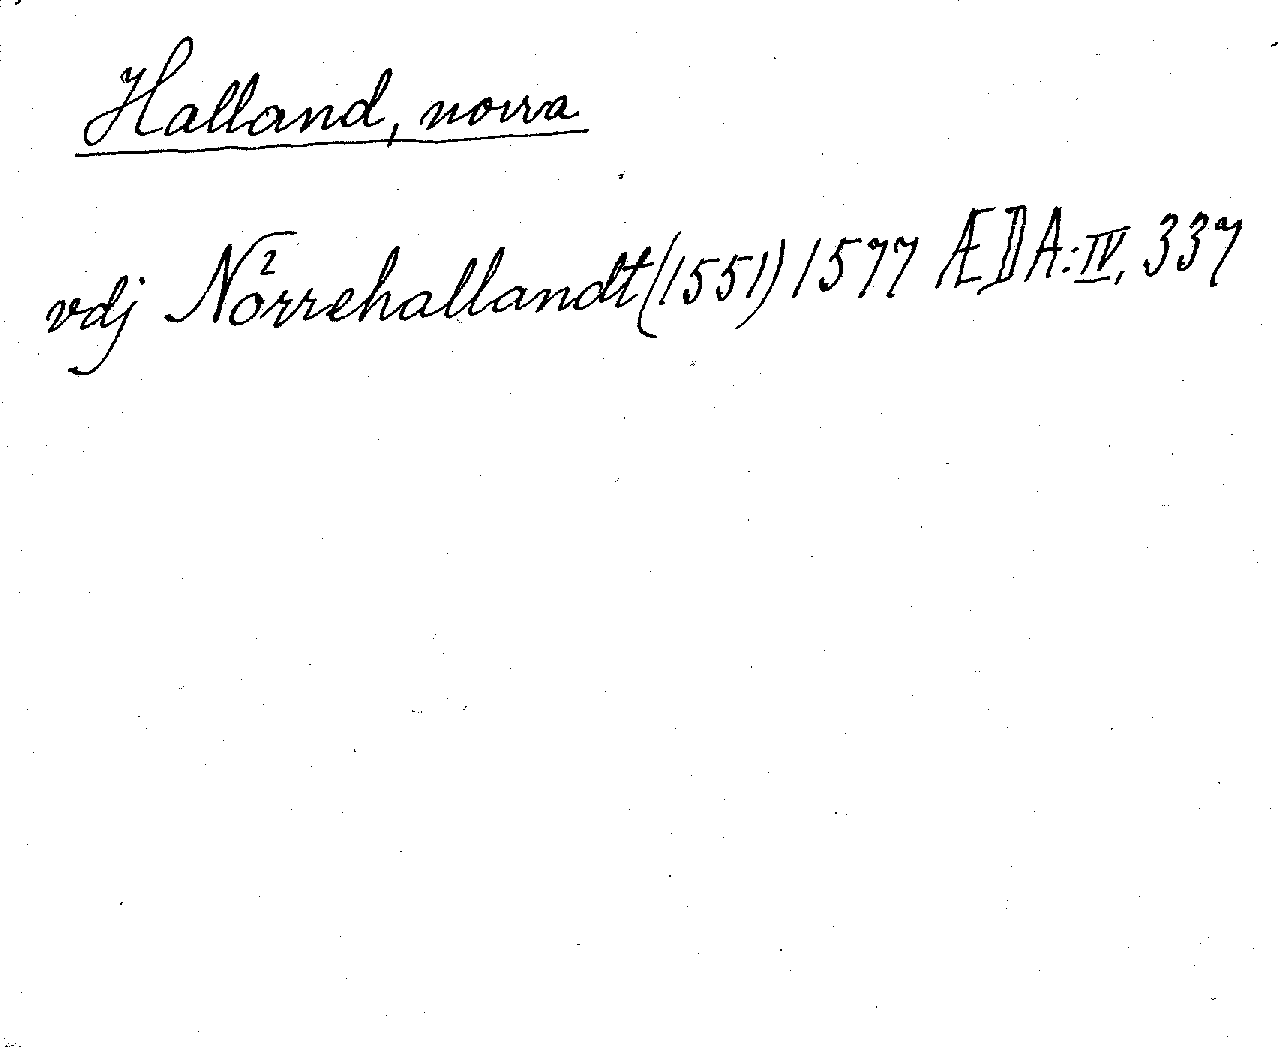 Halland, norra
vdj Nòrrehallandt (1551) 1577 ÆDA:IV, 337